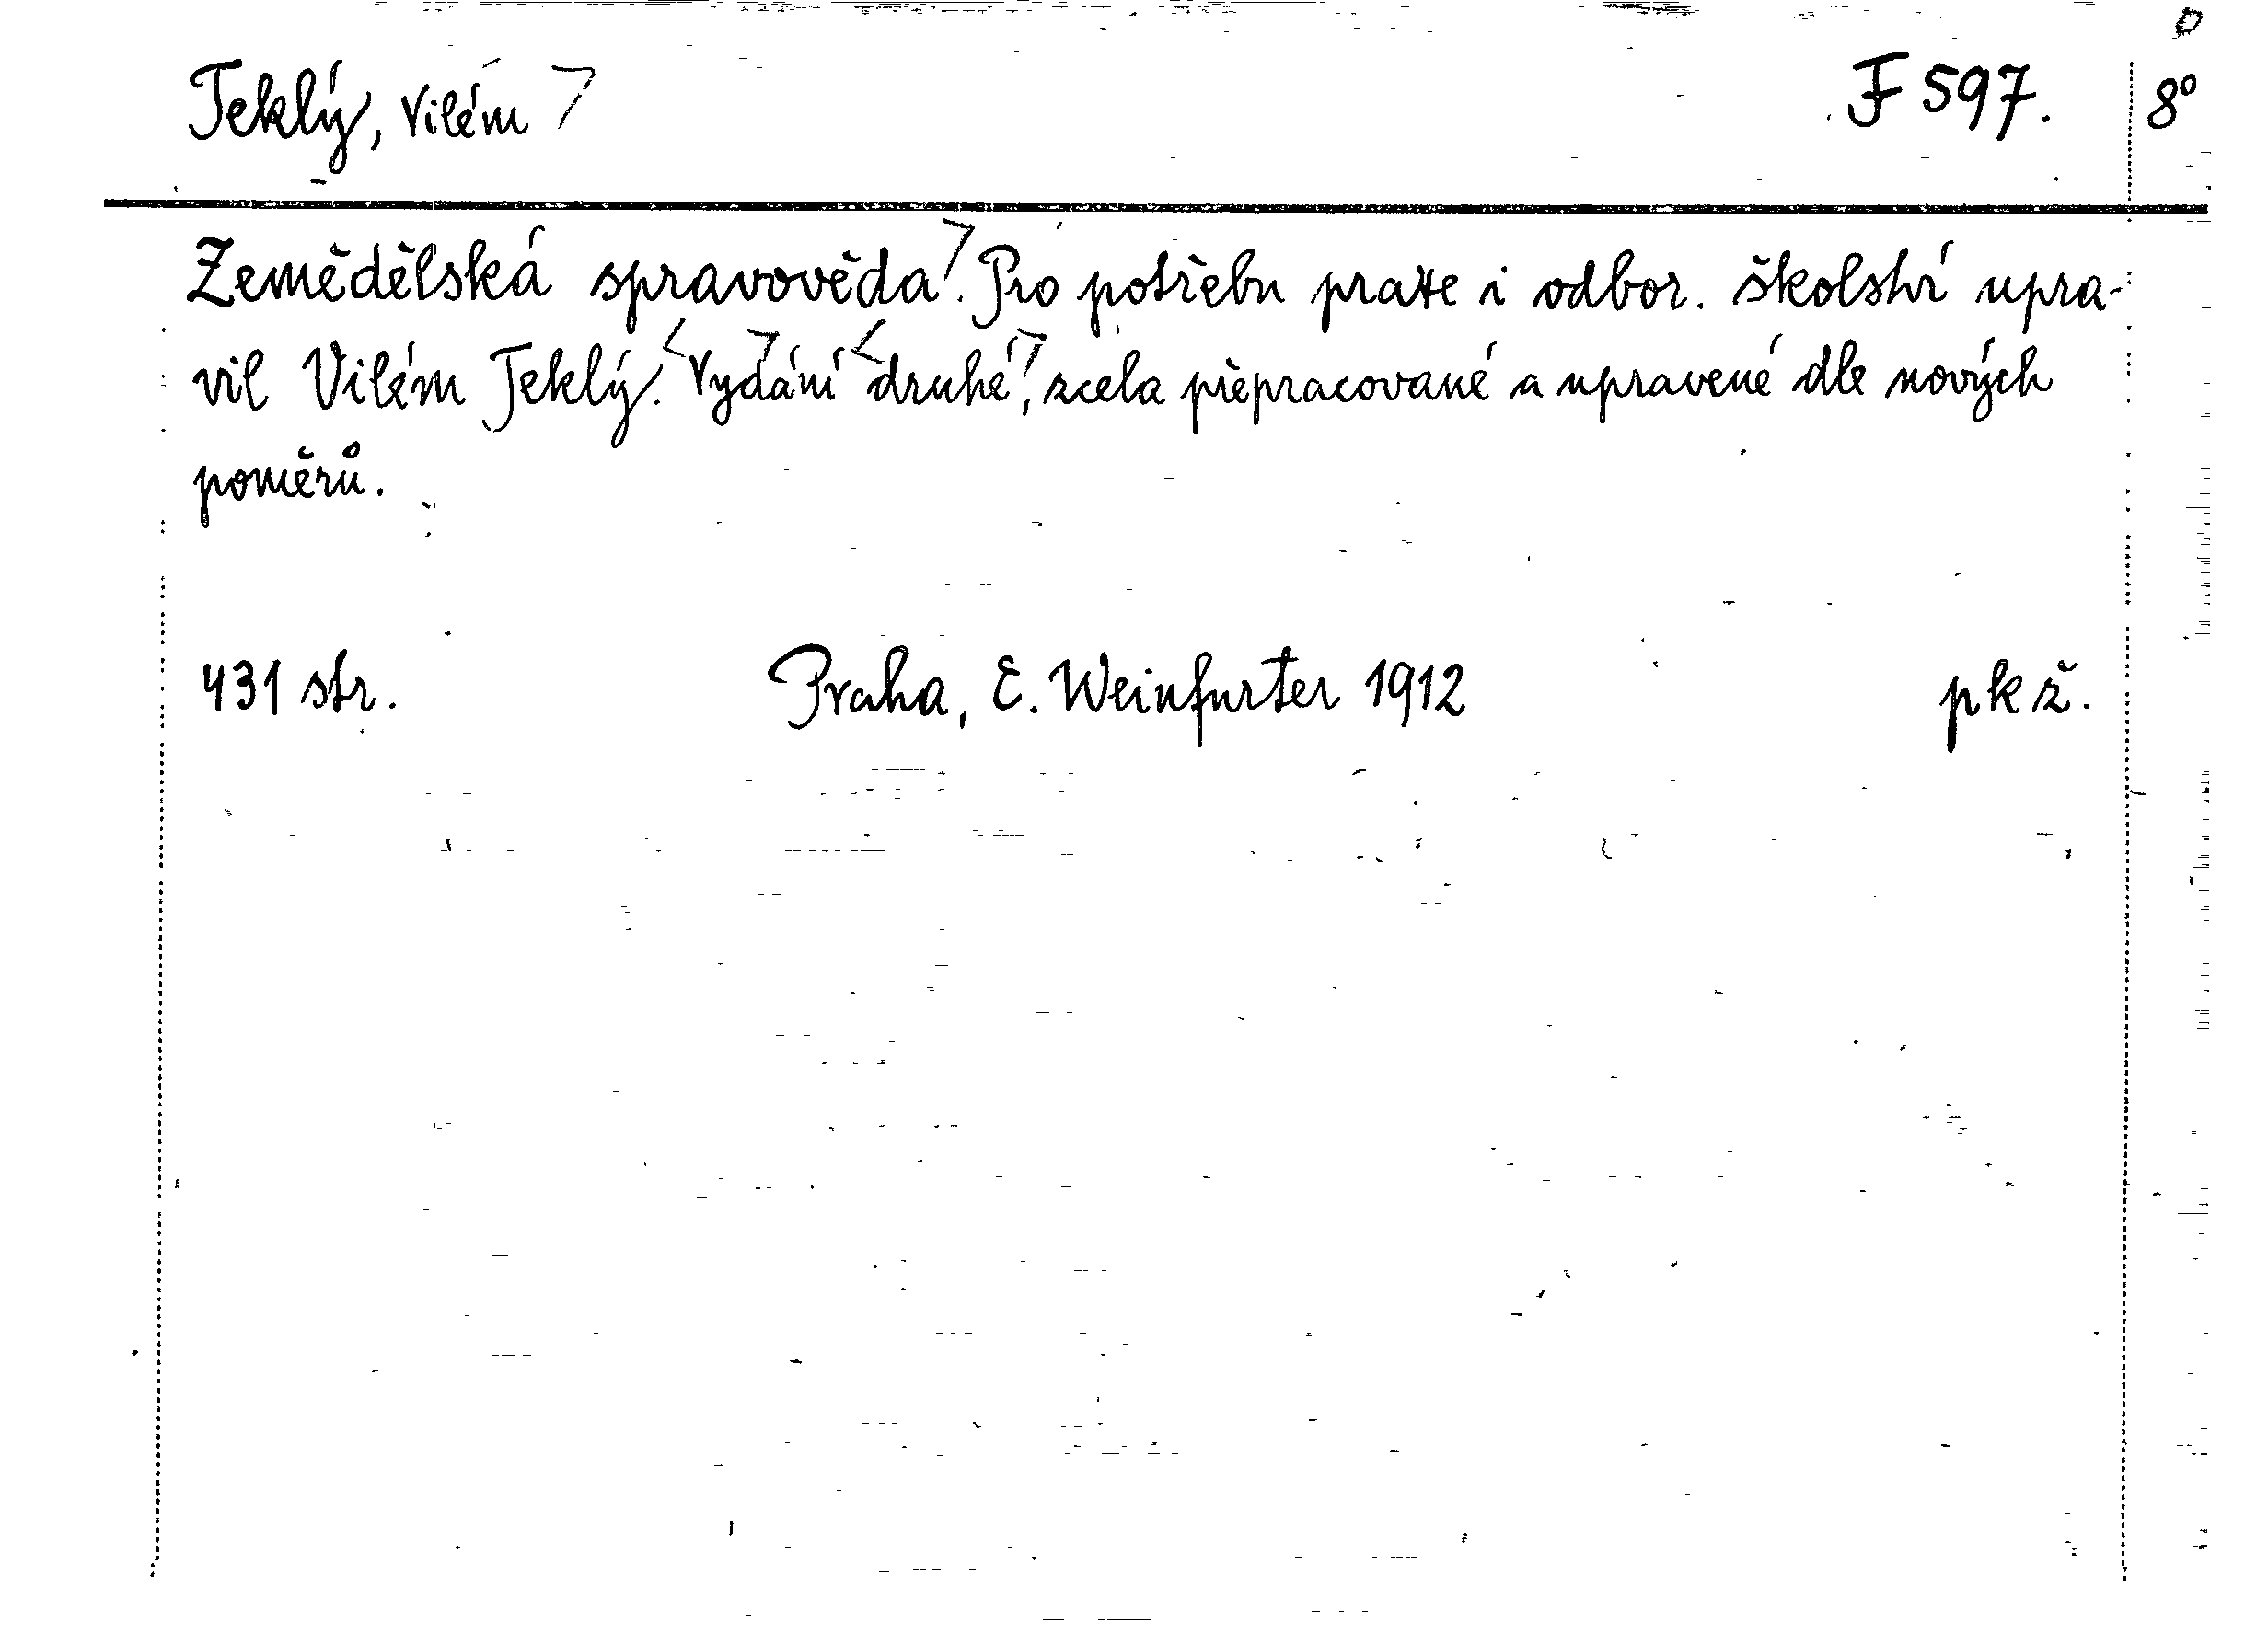 Teklý, Vilém F 597. 8°
Zemědělská spravověda. Pro potřebu praxe i odbor. školství upra-
vil Vilém Teklý. Vydání druhé, zcela přepracované a upravené dle nových
poměrů.
431 str. Praha, E. Weinfurter 1912 pk ž.